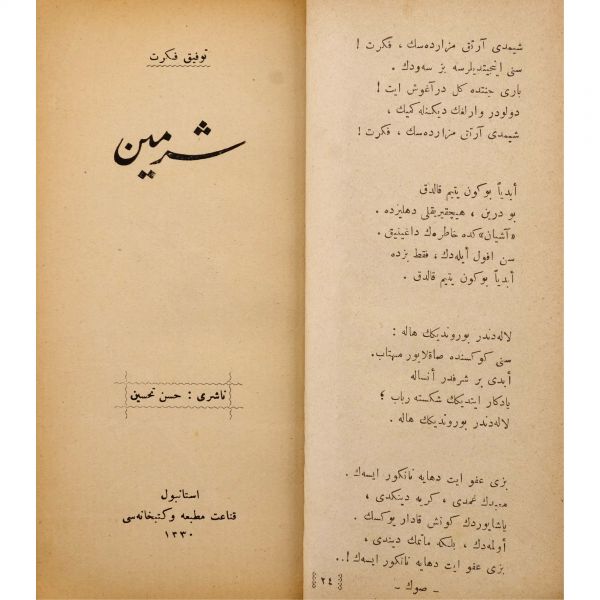 توفیق فكرت
شرمین
ناشری : حسن تحسین
استانبول
قناعت مطبعه و كتبخانه‌سی
۱۳۳۰
شیمدی آرتق مزارده‌سك ، فكرت !
سنی اینجیتدیلرسه بز سه‌ودك .
باری جنتده كل درآغوش ایت !
دولودر وارلغك دیكنله كمیك ،
شیمدی آرتق مزارده‌سك ، فكرت !
أبدیاً بوكون یتیم قالدق
بو درین ، هیچقیریقلی دهلیزده .
«آشیان»كده خاطره‌ك داغینیق .
سن افول أیله‌دك ، فقط بزده
أبدیاً بوكون یتیم قالدق .
لاله‌دندر بوروندیكك هاله :
سنی كوكسنده صاقلایور مهتاب.
أبدی بر شرفدر أنساله
یادكار ایتدیكك شكسته رباب ؛
لاله‌دندر بوروندیكك هاله .
بزی عفو ایت دهایه نانكور ایسه‌ك .
غمدی ، كریه دینكدی ،
یاشایوردك كونش قادار یوكسك .
أولمه‌دك ، بلكه ماتمك دیندی ،
بزی عفو ایت دهایه نانكور ایسه‌ك !..
- صوك -
۲٤